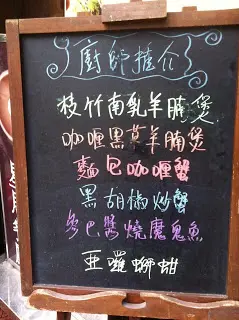 廚師推介
枝竹南乳羊腩煲
咖喱黑草羊腩煲
麵包咖喱蟹
黑胡椒炒蟹
參巴醬燒魔鬼魚
亞囉螄蚶